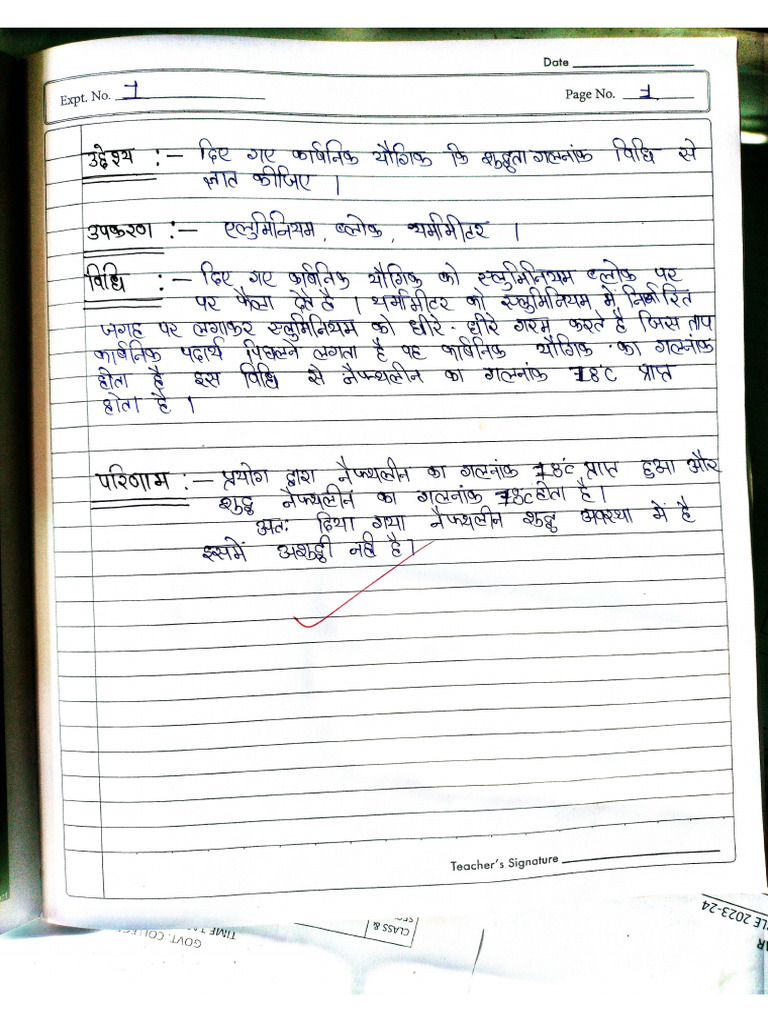 Date
Expt. No. 1
Page No. 1
उद्देश्य :- दिए गए कार्बनिक यौगिक कि शुद्धता गलनांक विधि से
ज्ञात कीजिए ।
उपकरण :- एलुमिनियम, ब्लोक, थर्मामीटर ।
विधि :- दिए गए कार्बनिक यौगिक को एलुमिनियम ब्लोक पर
पर फैला देते है । थर्मामीटर को एलुमिनियम में निर्धारित
जगह पर लगाकर एलुमिनियम को धीरे-धीरे गरम करते है जिस ताप
कार्बनिक पदार्थ पिघलने लगता है वह कार्बनिक यौगिक का गलनांक
होता है इस विधि से नैफ्थलीन का गलनांक 78c प्राप्त
होता है ।
परिणाम :- प्रयोग द्वारा नैफ्थलीन का गलनांक 78°c प्राप्त हुआ और
शुद्ध नैफ्थलीन का गलनांक 78c होता है ।
अतः दिया गया नैफ्थलीन शुद्ध अवस्था में है
इसमें अशुद्धी नही है ।
Teacher's Signature
CLASS &
TIME
GOVT. COLLEG
LE 2023-24